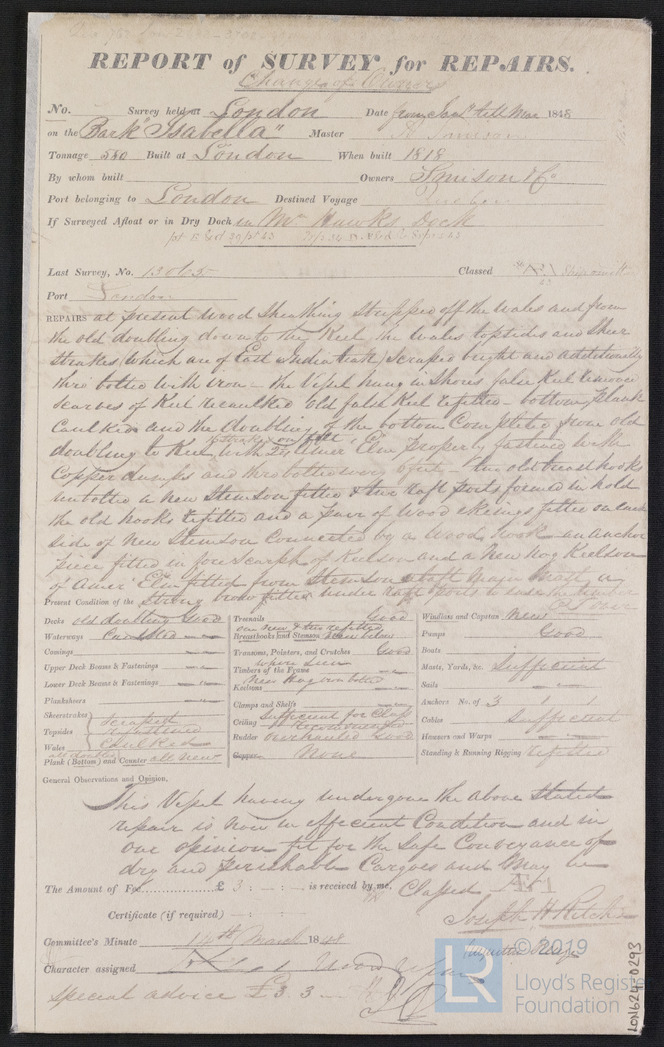 REPORT of SURVEY for REPAIRS.
Change of Owners
No. Survey held at London Date from Jany till Mar 1848
on the Bark "Isabella" Master
Tonnage 580 Built at London When built 1818
By whom built Owners & Co
Port belonging to London Destined Voyage
If Surveyed Afloat or in Dry Dock in Mr Hawks Dock
Last Survey, No. 13063 Classed
Port London
REPAIRS at present Wood Sheathing Stripped off the Wales and from
the old doubling down to the Keel the Wales topsides and Sheer
Strakes (which are of East India teak) Scraped bright and additionally
thro bolted with iron - the Vessel hung in Shores false Keel removed
scarves of Keel recaulked Old false Keel refitted - bottom plank
Caulked and the doubling of the bottom Completed from old
doubling to Keel with 2½ Amer Elm properly fastened with
Copper dumps and thro bolts - two old breast hooks
unbolted a new Stemson fitted & two raft ports formed in hold
the old hooks refitted and a pair of Wood ekeings fitted on each
side of New Stemson Connected by a Wood hook - an anchor
piece fitted in fore scarph of Keelson and a New Hog Keelson
of Amer Elm fitted from Stemson abaft Main Mast a
Strong hook fitted under raft ports
Present Condition of the
Decks old doubling Good
Waterways Caulked
Comings
Upper Deck Beams & Fastenings
Lower Deck Beams & Fastenings
Planksheers
Sheerstrakes
Topsides
Wales
scraped
refastened
Caulked
Plank (Bottom) and Counter all new
Treenails Good
one new & two refitted
Breasthooks and Stemson
Transoms, Pointers, and Crutches Good
where seen
Timbers of the Frame
New Hog
Keelsons
Clamps and Shelfs
Ceiling Sufficient for Class
Rudder overhauled Good
Copper None
Windlass and Capstan New
Pumps Good
Boats
Masts, Yards, &c. Sufficient
Sails
Anchors No. of 3 1 1
Cables Sufficient
Hawsers and Warps
Standing & Running Rigging refitted
General Observations and Opinion.
This Vessel having undergone the above Stated
repair is now in efficient Condition and in
our opinion fit for the Safe Conveyance of
dry and perishable Cargoes and may be
The Amount of Fee £ 3 : - : - is received by me, Classed Æ1
Certificate (if required)
Joseph H Ritchie
Committee's Minute 14th March 1848
Augustin
Character assigned Æ1 upon
special advice £3 3 -
© 2019
LR
Lloyd's Register
Foundation
LON624-0293